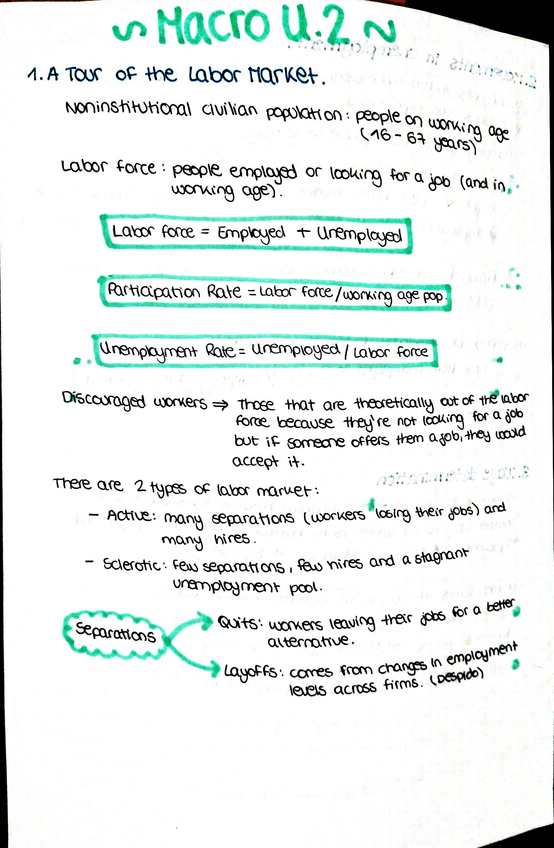 ~ Macro U.2 ~
1. A Tour of the Labor Market.
Noninstitutional civilian population: people on working age
(16-67 years)
Labor force: people employed or looking for a job (and in
working age).
Labor force = Employed + Unemployed
Participation Rate = Labor force/working age pop.
Unemployment Rate = Unemployed / Labor force
Discouraged workers ⇒ Those that are theoretically out of the labor
force because they're not looking for a job
but if someone offers them a job, they would
accept it.
There are 2 types of labor market:
- Active: many separations (workers losing their jobs) and
many hires.
- Sclerotic: few separations, few hires and a stagnant
unemployment pool.
Separations
Quits: workers leaving their jobs for a better
alternative.
Layoffs: comes from changes in employment
levels across firms. (Despido)